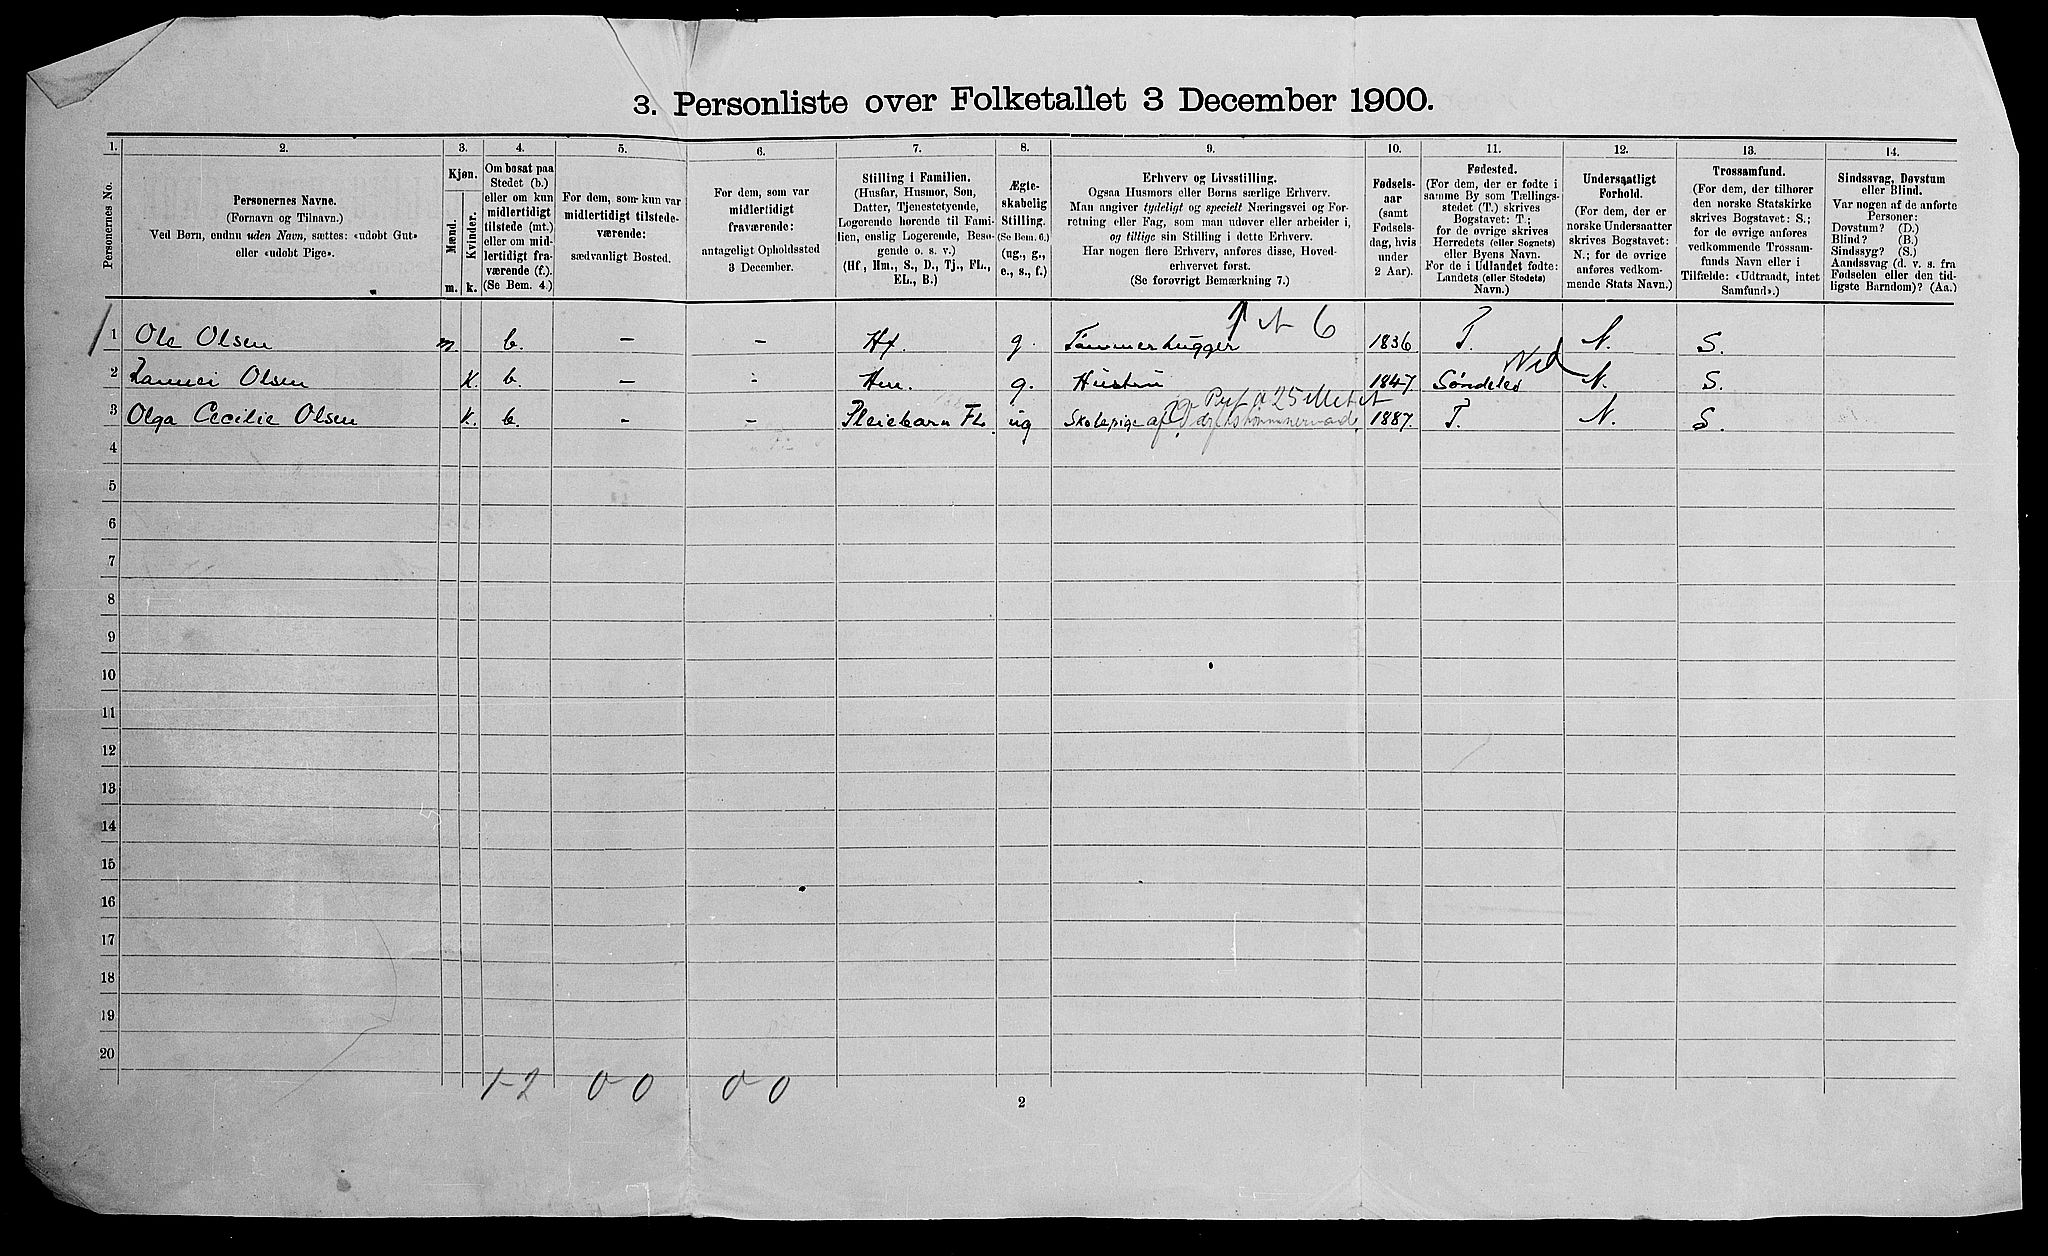 3. Personliste over Folketallet 3 December 1900.
1. 2. 3. 4. 5. 6. 7. 8. 9. 10. 11. 12. 13. 14.
Personernes No.
Personernes Navne.
(Fornavn og Tilnavn.)
Ved Børn, endnu uden Navn, sættes: «udøbt Gut»
eller «udøbt Pige».
Kjøn.
Mænd.
Kvinder.
m. k.
Om bosat paa
Stedet (b.)
eller om kun
midlertidigt
tilstede (mt.)
eller om mid-
lertidigt fra-
værende (f.).
(Se Bem. 4.)
For dem, som kun var
midlertidigt tilstede-
værende:
sædvanligt Bosted.
For dem, som var
midlertidigt
fraværende:
antageligt Opholdssted
3 December.
Stilling i Familien.
(Husfar, Husmor, Søn,
Datter, Tjenestetyende,
Logerende hørende til Fami-
lien, enslig Logerende, Besø-
gende o. s. v.)
(Hf, Hm., S., D., Tj., FL.,
EL., B.)
Ægte-
skabelig
Stilling.
(Se Bem. 6.)
(ug., g.,
e., s., f.)
Erhverv og Livsstilling.
Ogsaa Husmors eller Børns særlige Erhverv.
Man angiver tydeligt og specielt Næringsvei og For-
retning eller Fag, som man udøver eller arbeider i,
og tillige sin Stilling i dette Erhverv.
Har nogen flere Erhverv, anføres disse, Hoved-
erhvervet først.
(Se forøvrigt Bemærkning 7.)
Fødsels-
aar
(samt
Fødsels-
dag, hvis
under
2 Aar).
Fødested.
(For dem, der er fødte i
samme By som Tællings-
stedet (T.) skrives
Bogstavet: T.;
for de øvrige skrives
Herredets (eller Sognets)
eller Byens Navn.
For de i Udlandet fødte:
Landets (eller Stedets)
Navn.)
Undersaatligt
Forhold.
(For dem, der er
norske Undersaatter
skrives Bogstavet:
N.; for de øvrige
anføres vedkom-
mende Stats Navn.)
Trossamfund.
(For dem, der tilhører
den norske Statskirke
skrives Bogstavet: S.;
for de øvrige anføres
vedkommende Trossam-
funds Navn eller i
Tilfælde: «Udtraadt, intet
Samfund».)
Sindssvag, Døvstum
eller Blind.
Var nogen af de anførte
Personer:
Døvstum? (D.)
Blind? (B.)
Sindssyg? (S.)
Aandssvag (d. v. s. fra
Fødselen eller den tid-
ligste Barndom)? (Aa.)
6
1 Ole Olsen m. b. – – Hf. g. Tømmerhugger 1836 T. N. S.
Ned
2 Olsen K. b. – – Hm. g. Hustru 1847 Søndeled N. S.
3 Olga Cecilie Olsen K. b. – – Pleiebarn FL. ug Skolepige 1887. T. N. S.
4
5
6
7
8
9
10
11
12
13
14
15
16
17
18
19
20
1-2 0 0 0 0
2